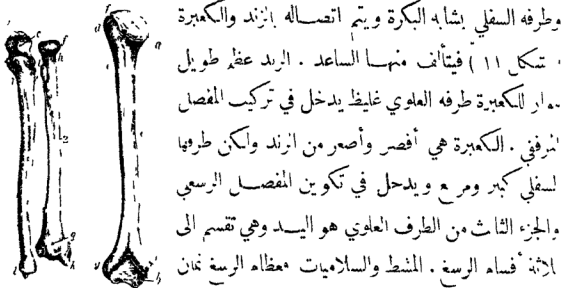 وطرفه السفلي يشابه البكرة ويتم اتصاله بالزند والكعبرة
شكل ١١ ) فيتألف منهما الساعد . الزند عظم طويل
مواز للكعبرة طرفه العلوي غليظ يدخل في تركيب المفصل
المرفقي . الكعبرة هي أقصر وأصغر من الزند ولكن طرفها
السفلي كبير ومربع ويدخل في تكوين المفصل الرسغي
والجزء الثالث من الطرف العلوي هو اليد وهي تقسم الى
ثلاثة أقسام الرسغ . المشط والسلاميات فعظام الرسغ ثمان